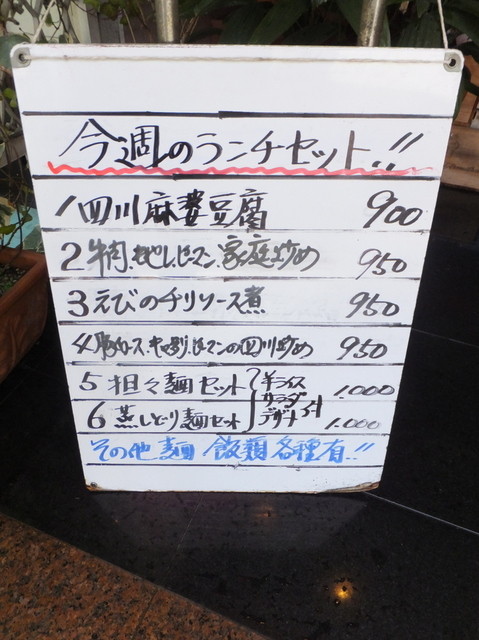 今週のランチセット!!
1 四川麻婆豆腐 900
2 牛肉、もやし、ピーマン、家庭炒め 950
3 えびのチリソース煮 950
4 豚ロース、キャベツ、ピーマンの四川炒め 950
5 担々麺セット 半ライス 1.000
サラダ
6 蒸しどり麺セット デザート 付 1.000
その他麺 飯類各種有!!